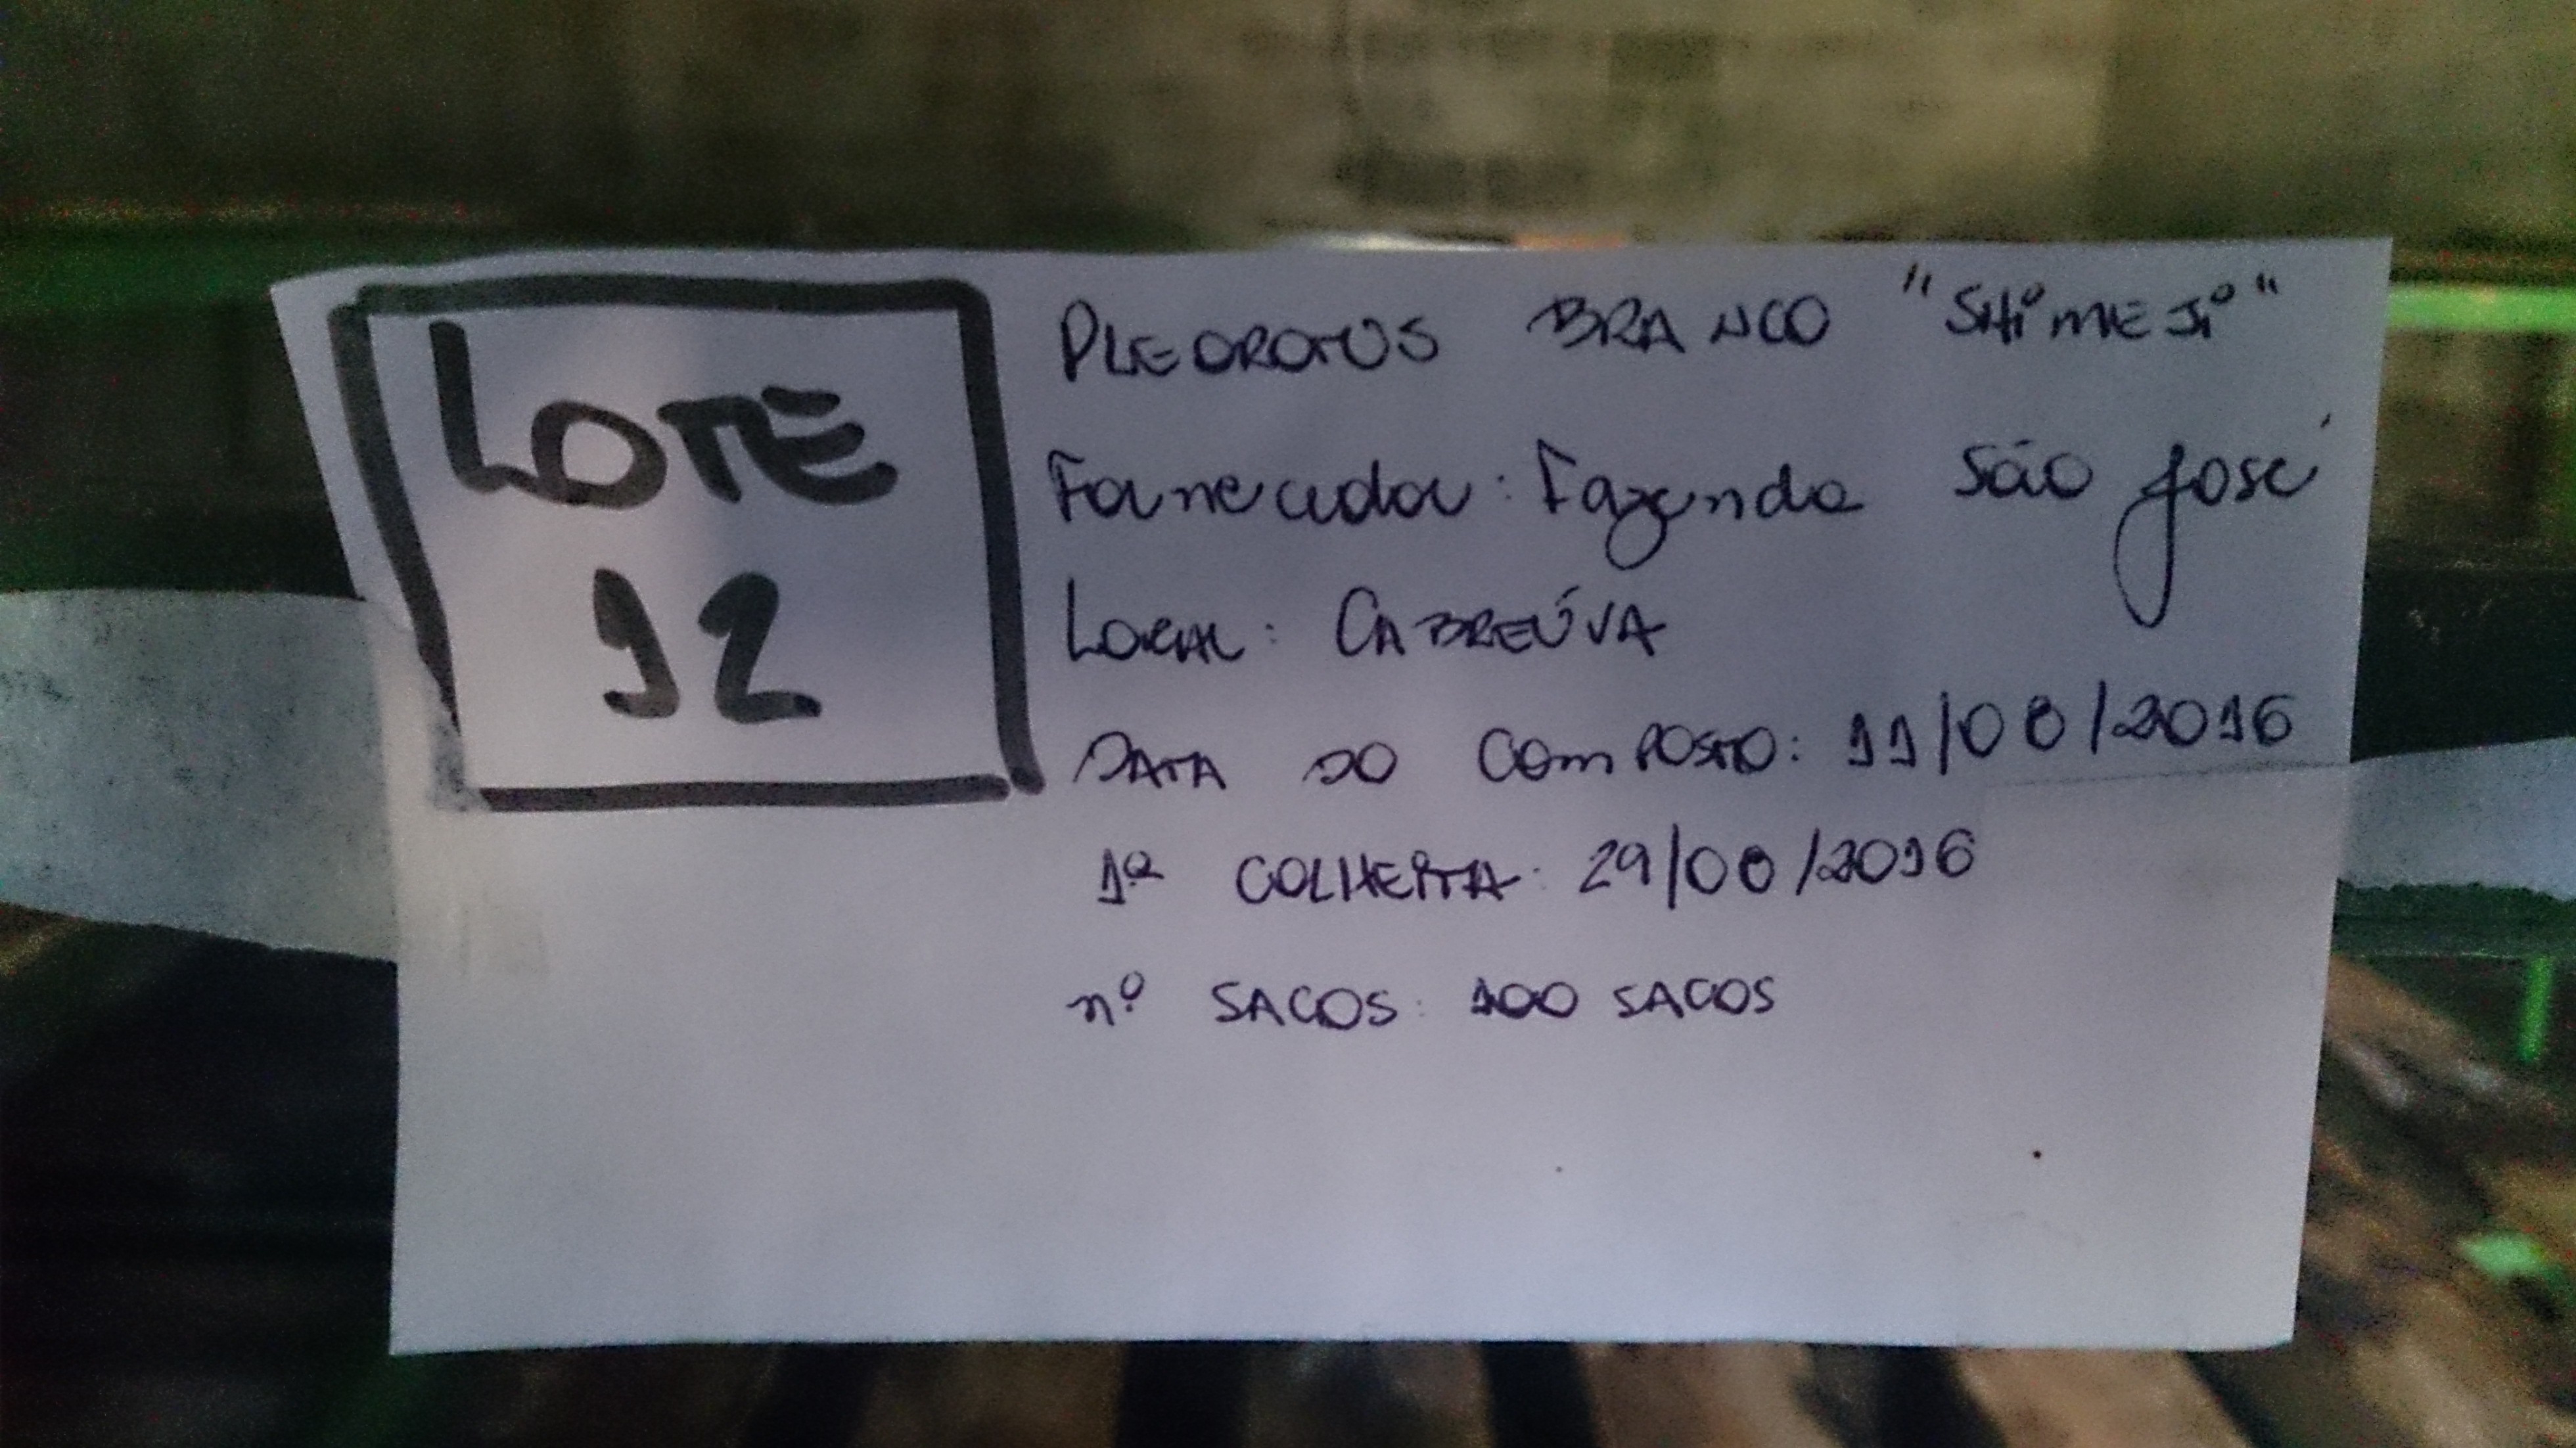 LOTE
12
PLEOROTUS BRANCO "SHiMEJi"
Fornecedor: Fazenda São José
LOCAL: CABREÚVA
DATA DO COMPOSTO: 11/08/2016
1ª COLHEITA: 29/08/2016
nº SACOS: 100 SACOS